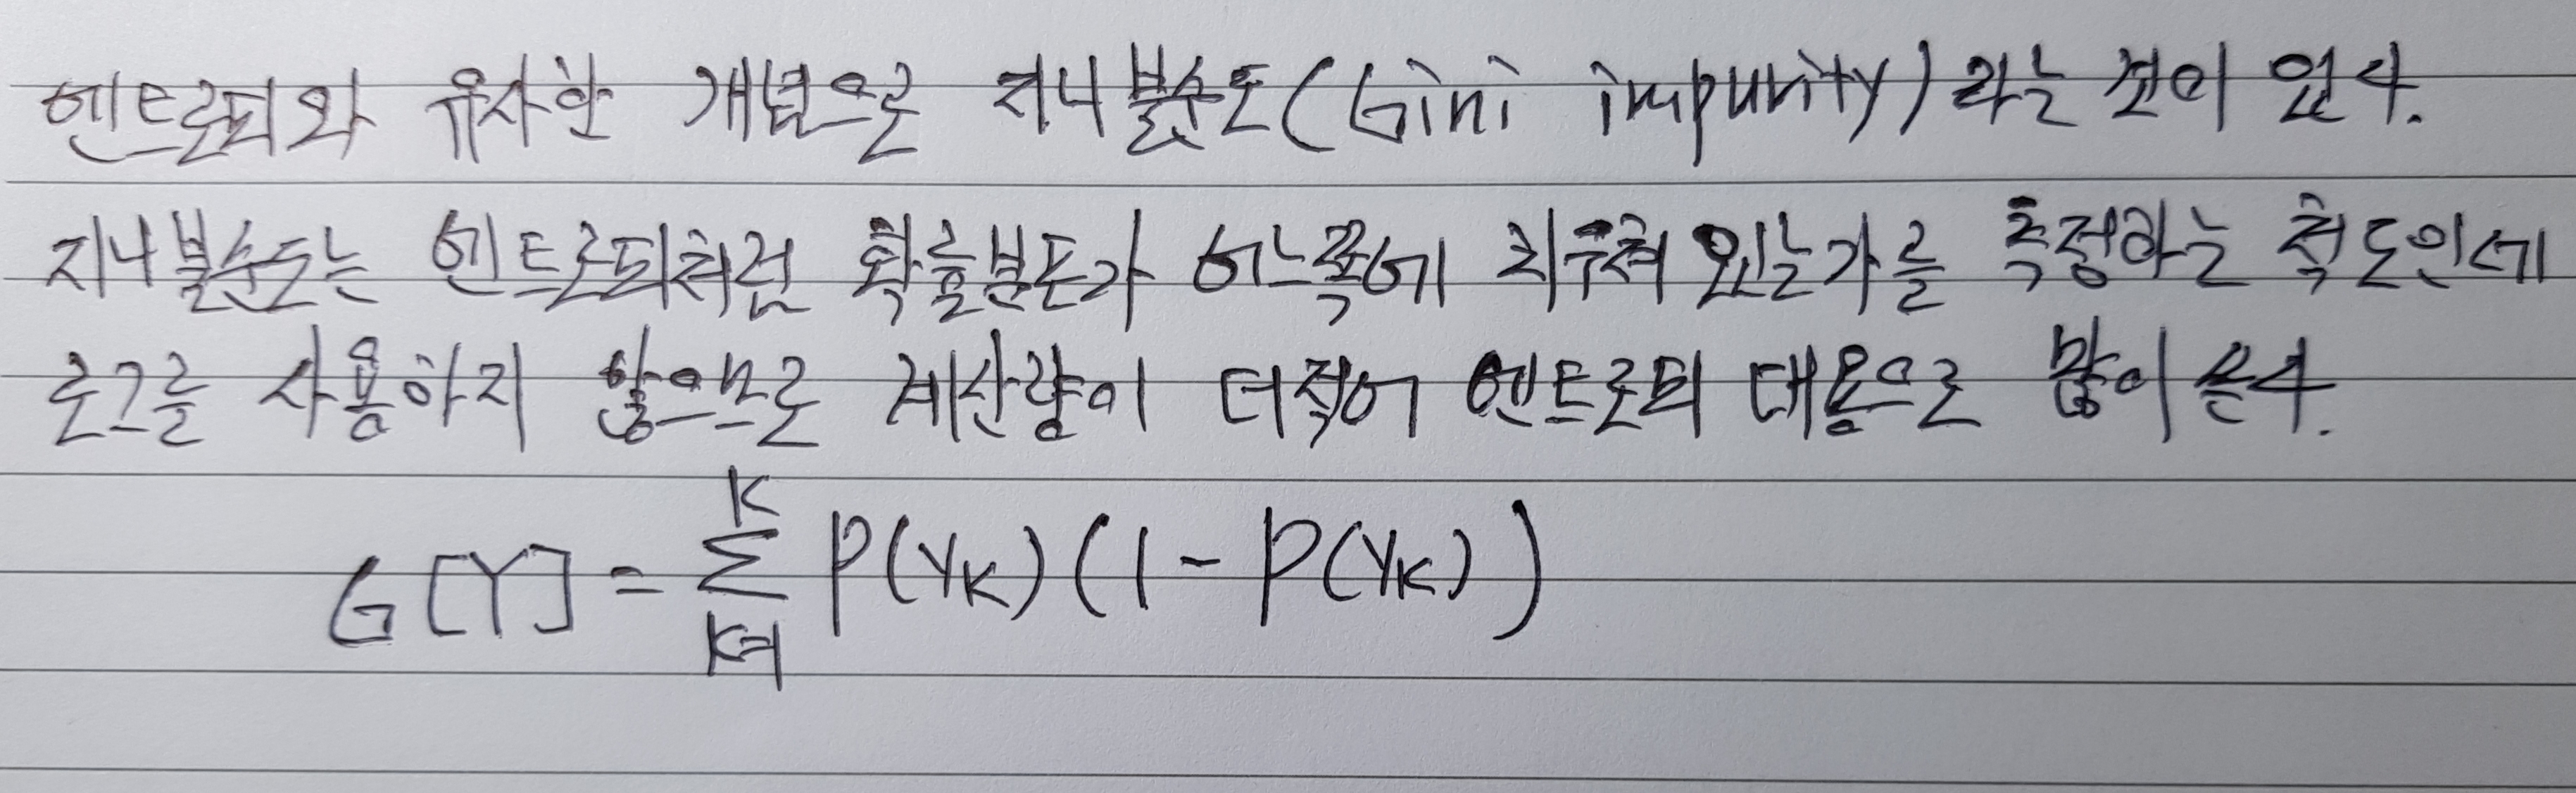 엔트로피와 유사한 개념으로 지니불순도(Gini impurity)라는 것이 있다.
지니불순도는 엔트로피처럼 확률분포가 어느쪽에 치우쳐 있는가를 측정하는 척도인데
로그를 사용하지 않으므로 계산량이 더 적어 엔트로피 대용으로 많이 쓴다.
G[Y] = \sum_{K=1}^{K} P(Y_K)(1 - P(Y_K))